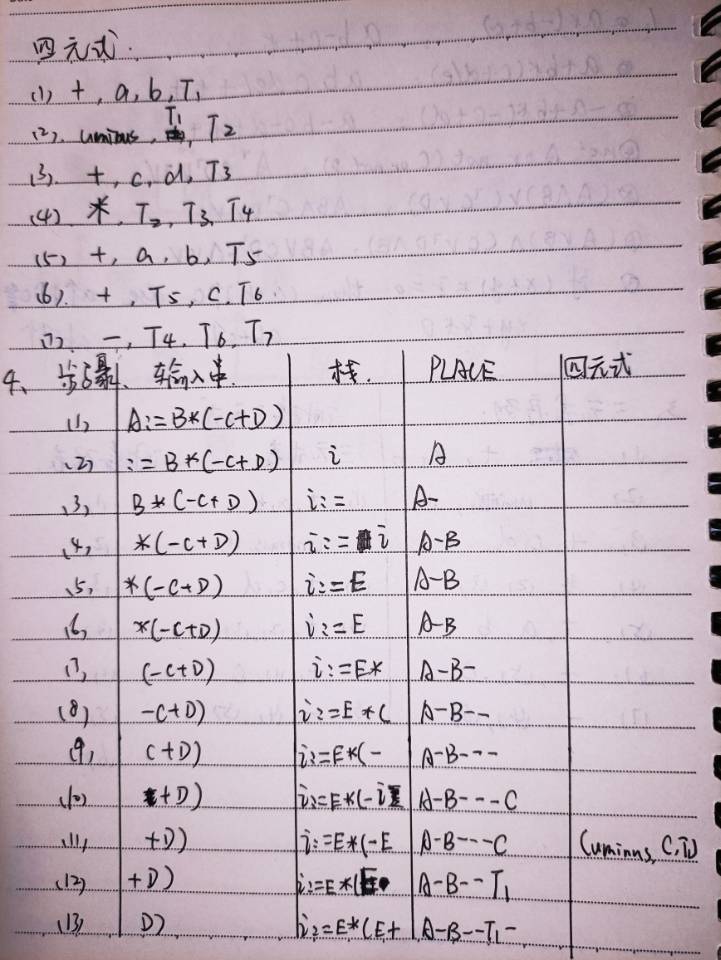 四元式.
(1) +, a, b, T1
(2). uminus, T1, T2
(3). +, c, d, T3
(4) *, T2, T3, T4
(5) +, a, b, T5
(6). +, T5, c, T6
(7). -, T4, T6, T7
4、 步骤、 输入串. 栈. PLACE 四元式
(1) A:=B*(-C+D)
(2) :=B*(-C+D) i A
(3) B*(-C+D) i:= A-
(4) *(-C+D) i:=i A-B
(5) *(-C+D) i:=E A-B
(6) *(-C+D) i:=E A-B
(7) (-C+D) i:=E* A-B-
(8) -C+D) i:=E*( A-B--
(9) C+D) i:=E*(- A-B---
(10) +D) i:=E*(-i A-B---C
(11) +D) i:=E*(-E A-B---C (uminus, C, T1)
(12) +D) i:=E*(E A-B--T1
(13) D) i:=E*(E+ A-B--T1-